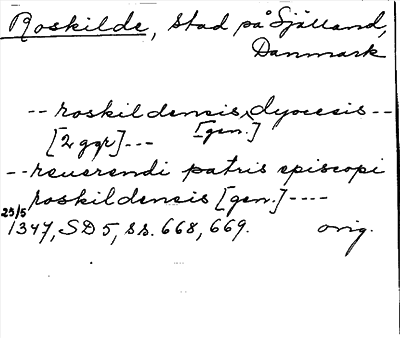 Roskilde, Stad på Själland,
Danmark
-- roskildensis dyocesis --
[2 ggr] --- [gen.]
-- reuerendi patris episcopi
roskildensis [gen.] ----
25/5
1347, SD 5, ss. 668, 669. orig.